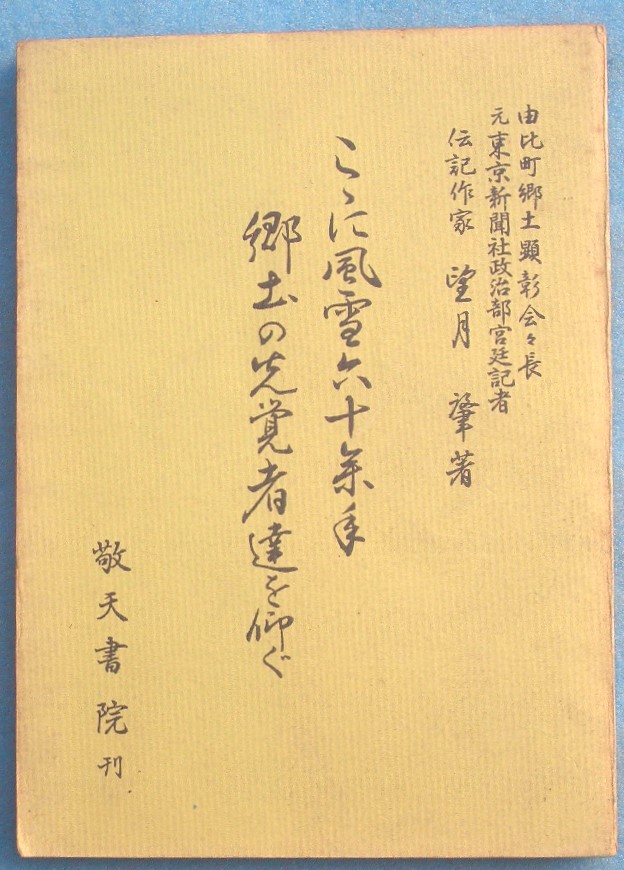 由比町郷土顕彰会々長
元東京新聞社政治部宮廷記者
伝記作家 望月 肇著
こゝに風雪六十余年
郷土の先覚者達を仰ぐ
敬天書院刊